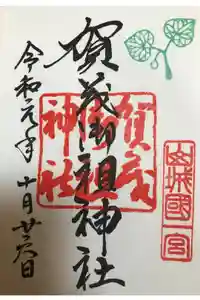 山城國一宮
賀茂御祖神社
賀茂
御祖
神社
令和元年十月廿六日